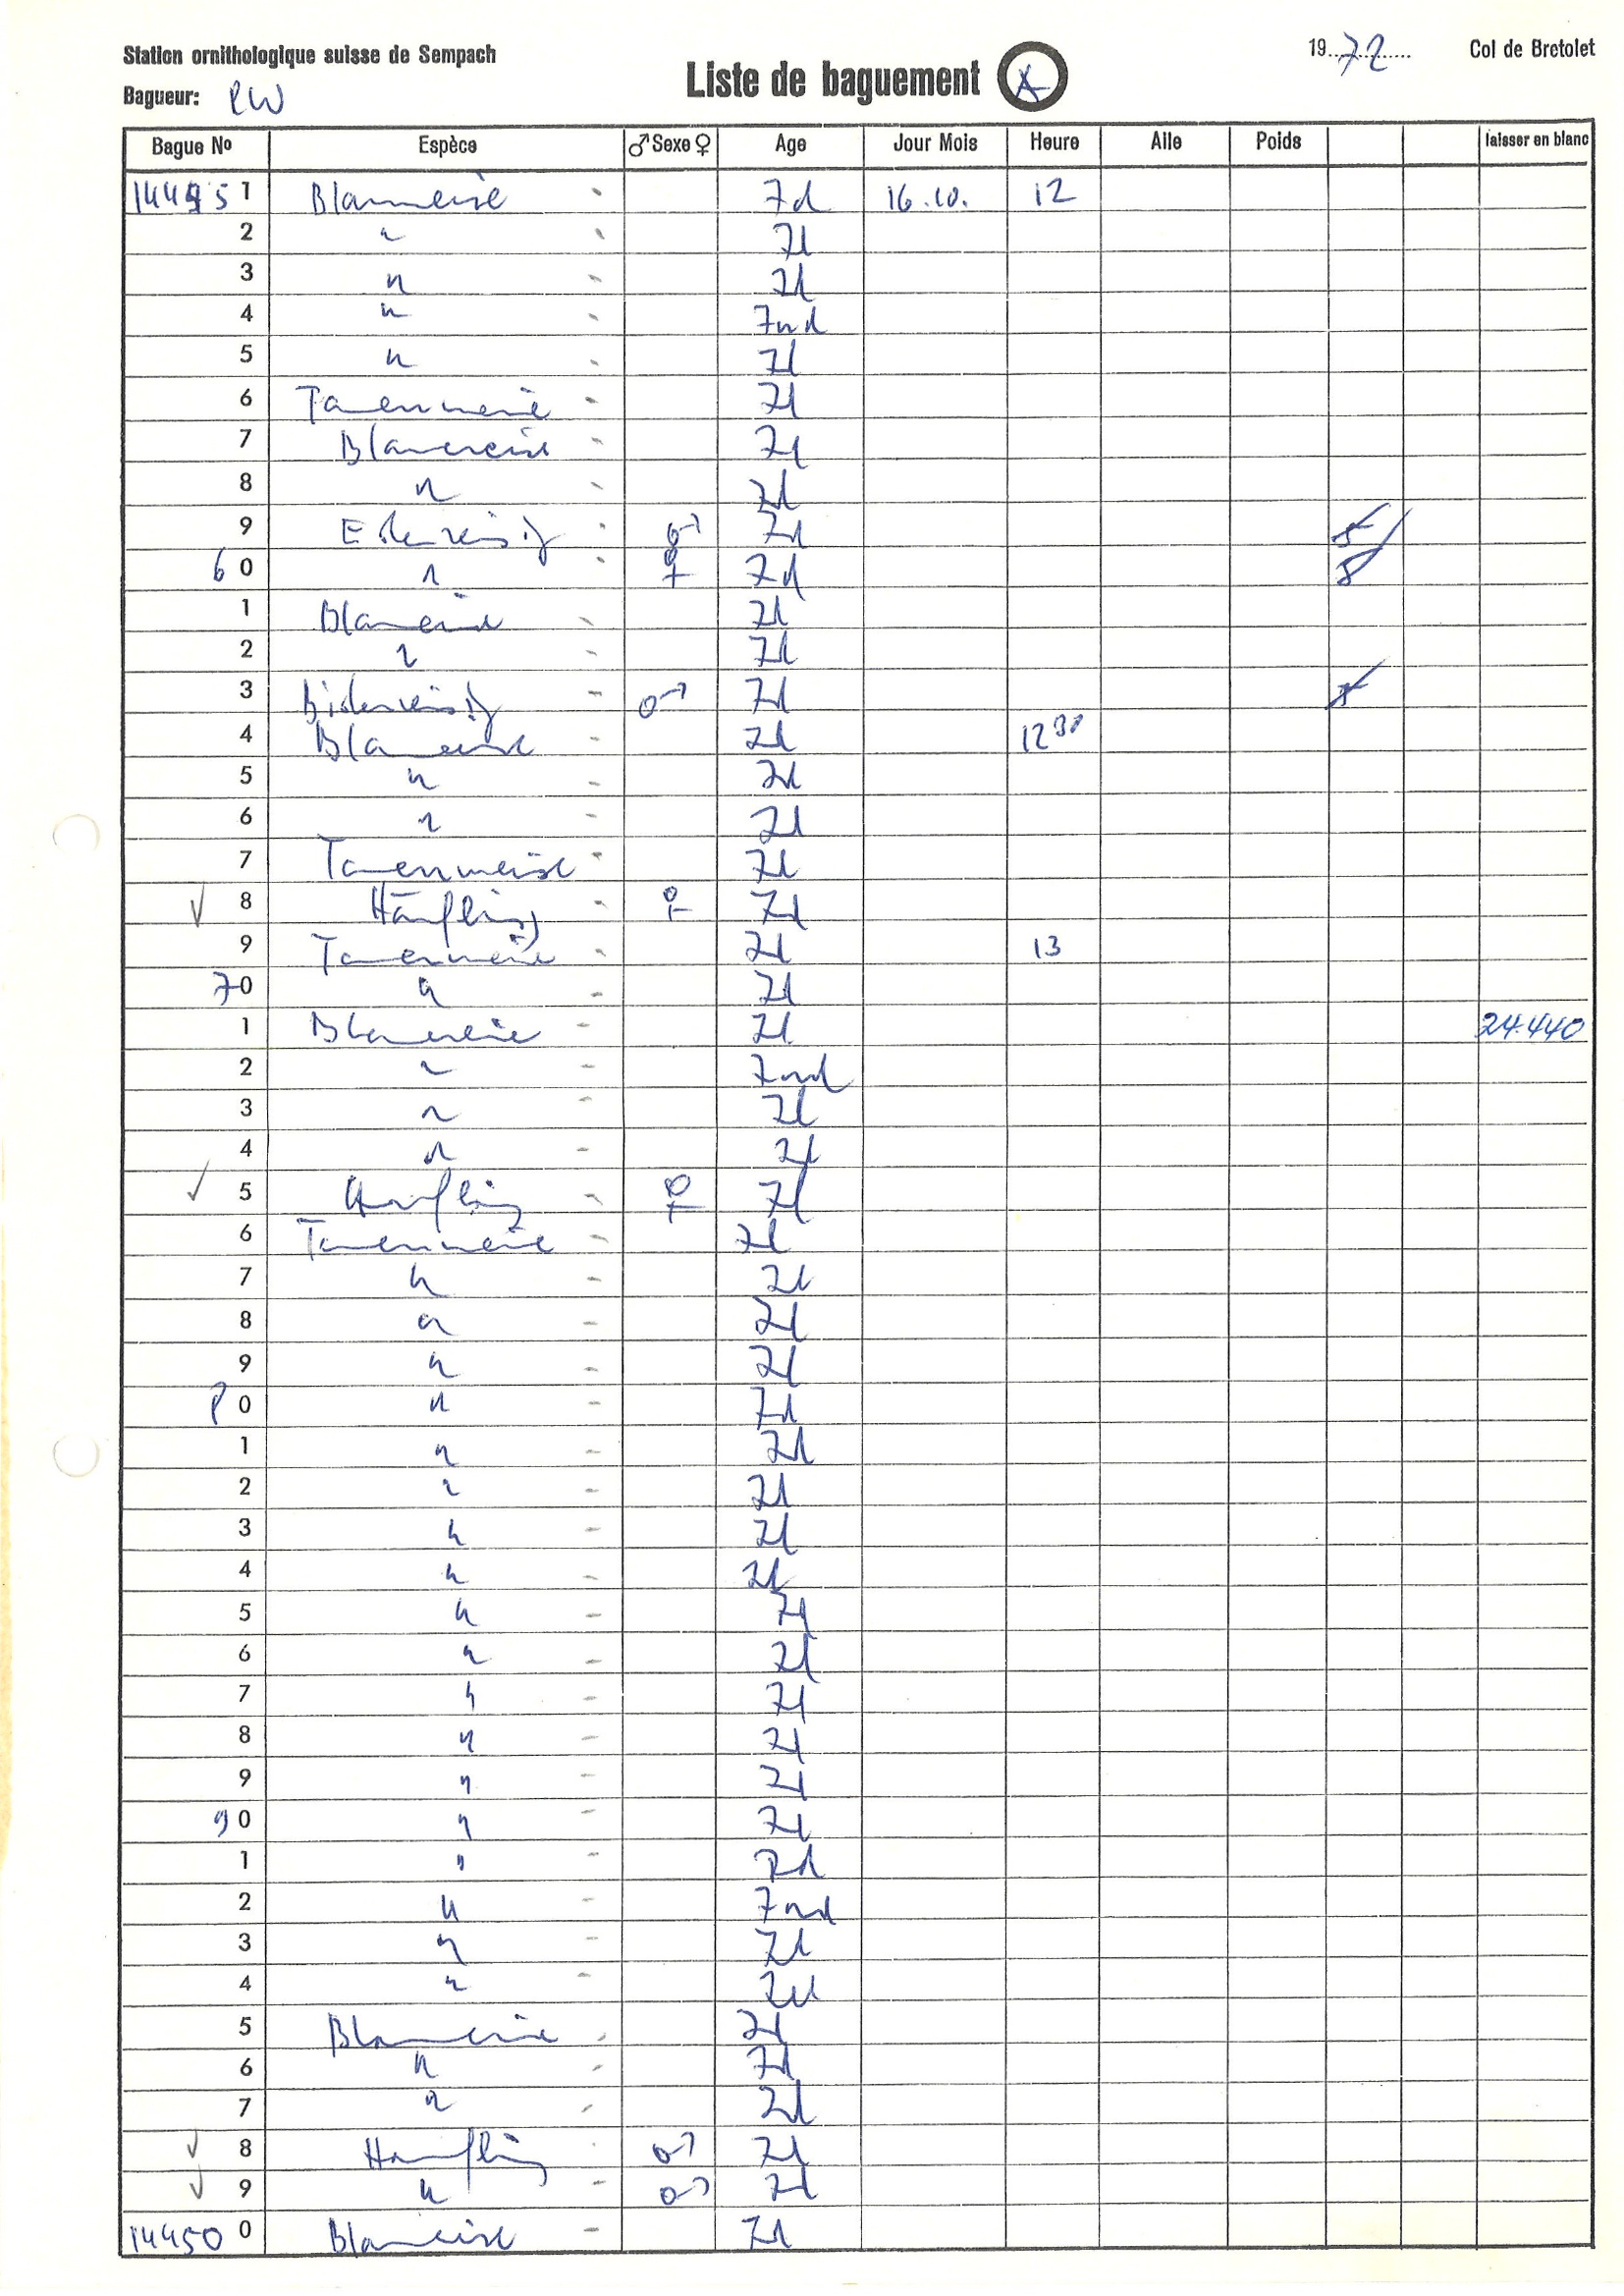 Station ornithologique suisse de Sempach
19 72 Col de Bretolet
Liste de baguement A
Bagueur: RW
Bague No Espèce ♂ Sexe ♀ Age Jour Mois Heure Aile Poids laisser en blanc
144451 Blaumeise - 7d 16.10. 12
2 " - 7d
3 " - 7d
4 " - 7nd
5 " - 7d
6 Tannenmeise - 7d
7 Blaumeise - 7d
8 " - 7d
9 Erlenzeisig - ♂ 7d
60 " - ♀ 7d
1 Blaumeise - 7d
2 " - 7d
3 - ♂ 7d
4 Blaumeise - 7d 12 30
5 " - 7d
6 " - 7d
7 Tannenmeise - 7d
✓ 8 Hänfling - ♀ 7d
9 Tannenmeise - 7d 13
70 " - 7d
1 Blaumeise - 7d 24.440
2 " - 7nd
3 " - 7d
4 " - 7d
✓ 5 Hänfling - ♀ 7d
6 Tannenmeise - 7d
7 " - 7d
8 " - 7d
9 " - 7d
80 " - 7d
1 " - 7d
2 " - 7d
3 " - 7d
4 " - 7d
5 " - 7d
6 " - 7d
7 " - 7d
8 " - 7d
9 " - 7d
90 " - 7d
1 " - 7d
2 " - 7nd
3 " - 7d
4 " - 7d
5 Blaumeise - 7d
6 " - 7d
7 " - 7d
✓ 8 Hänfling - ♂ 7d
✓ 9 " - ♂ 7d
144500 Blaumeise - 7d